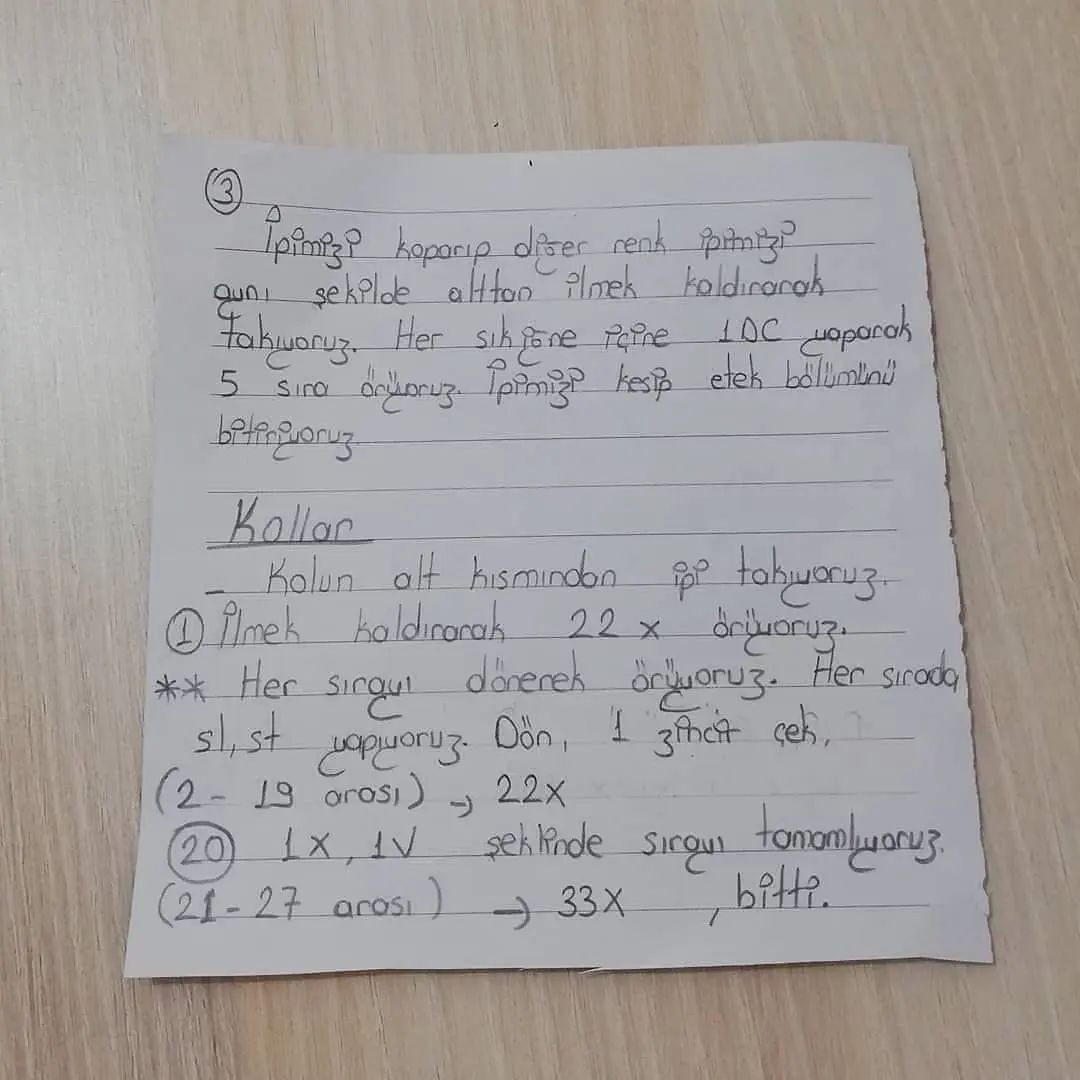 ③
İpimizi koparıp diğer renk ipimizi
aynı şekilde alttan ilmek kaldırarak
takıyoruz. Her sık iğne içine 1DC yaparak
5 sıra örüyoruz. İpimizi kesip etek bölümünü
bitiriyoruz
Kollar
- Kolun alt kısmından ipi takıyoruz.
① İlmek kaldırarak 22 x örüyoruz.
** Her sırayı dönerek örüyoruz. Her sırada
sl, st yapıyoruz. Dön, 1 zincir çek.
(2 - 19 arası) → 22x
⑳ 1X, 1V şeklinde sırayı tamamlıyoruz.
(21 - 27 arası) → 33X , bitti.